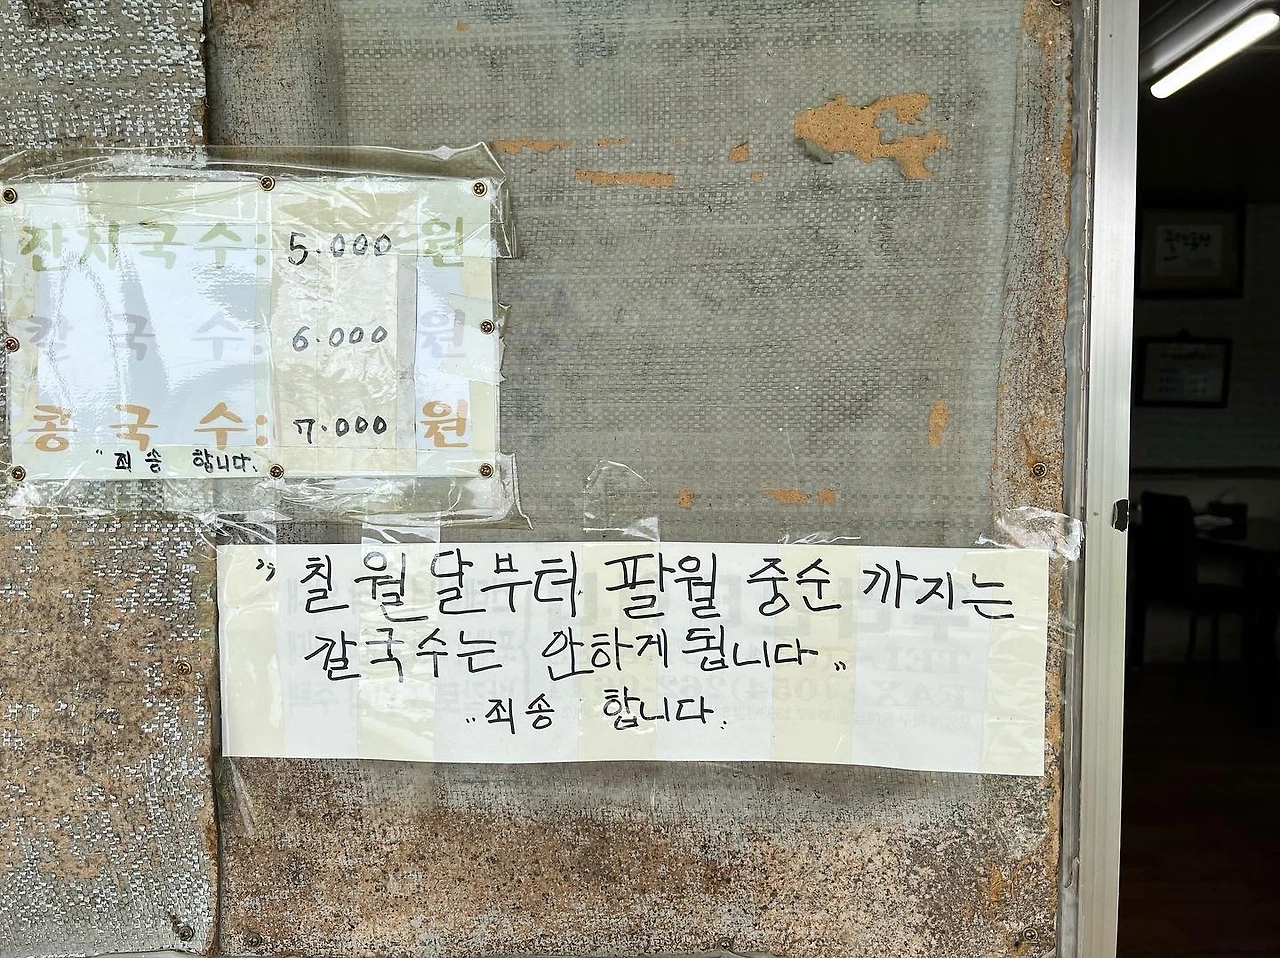 잔치국수: 5.000 원
칼국수: 6.000 원
콩국수: 7.000 원
"죄송 합니다.
" 칠월달부터 팔월 중순 까지는
칼국수는 안하게 됩니다"
"죄송 합니다.